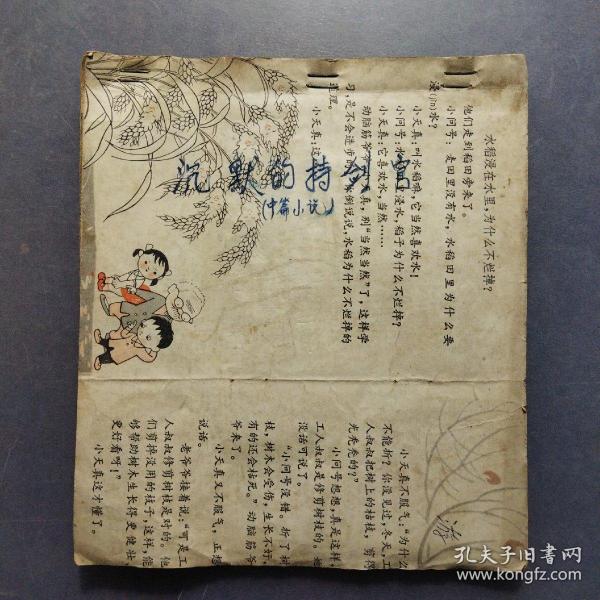 水稻浸在水里,为什么不烂掉?
他们走到稻田旁来了。
小问号:麦田里没有水,水稻田里为什么要
浸(jìn)水?
小天真:叫水稻嘛,它当然喜欢水!
小问号:水
里浸水,稻子为什么不烂掉?
小天真:它喜欢水,当然……
动脑筋爷
真,别“当然当然”了,这样学
习,是不会进步的
倒说说,水稻为什么不烂掉的
道理。
小天真:这
沉默的持剑
(中篇小说)
小天真不服气:“为什么
不能折?你没见过,冬天,工
人叔叔把树上的枯枝,剪得
光秃秃的?”
小问号想想,真是这样,
工人叔叔是修剪树枝的。她
没话可说了。
“小问号没错。折了树
枝,树木会受伤,生长不好,
有的还会枯死。”动脑筋爷
爷来了。
小天真又不服气,正想
说话。
老爷爷接着说:“可是工
人叔叔修剪树枝是对的。他
们剪掉没用的枝子,这样,能
够帮助树木生长得更健壮、
更好看呀!”
小天真这才懂了。
游
孔夫子旧书网
www.kongfz.com